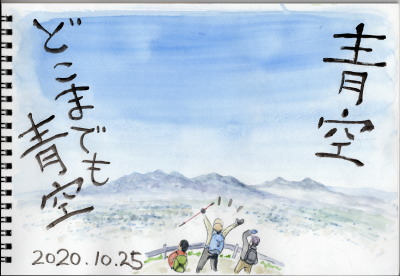 青空
どこまでも
青空
2020.10.25